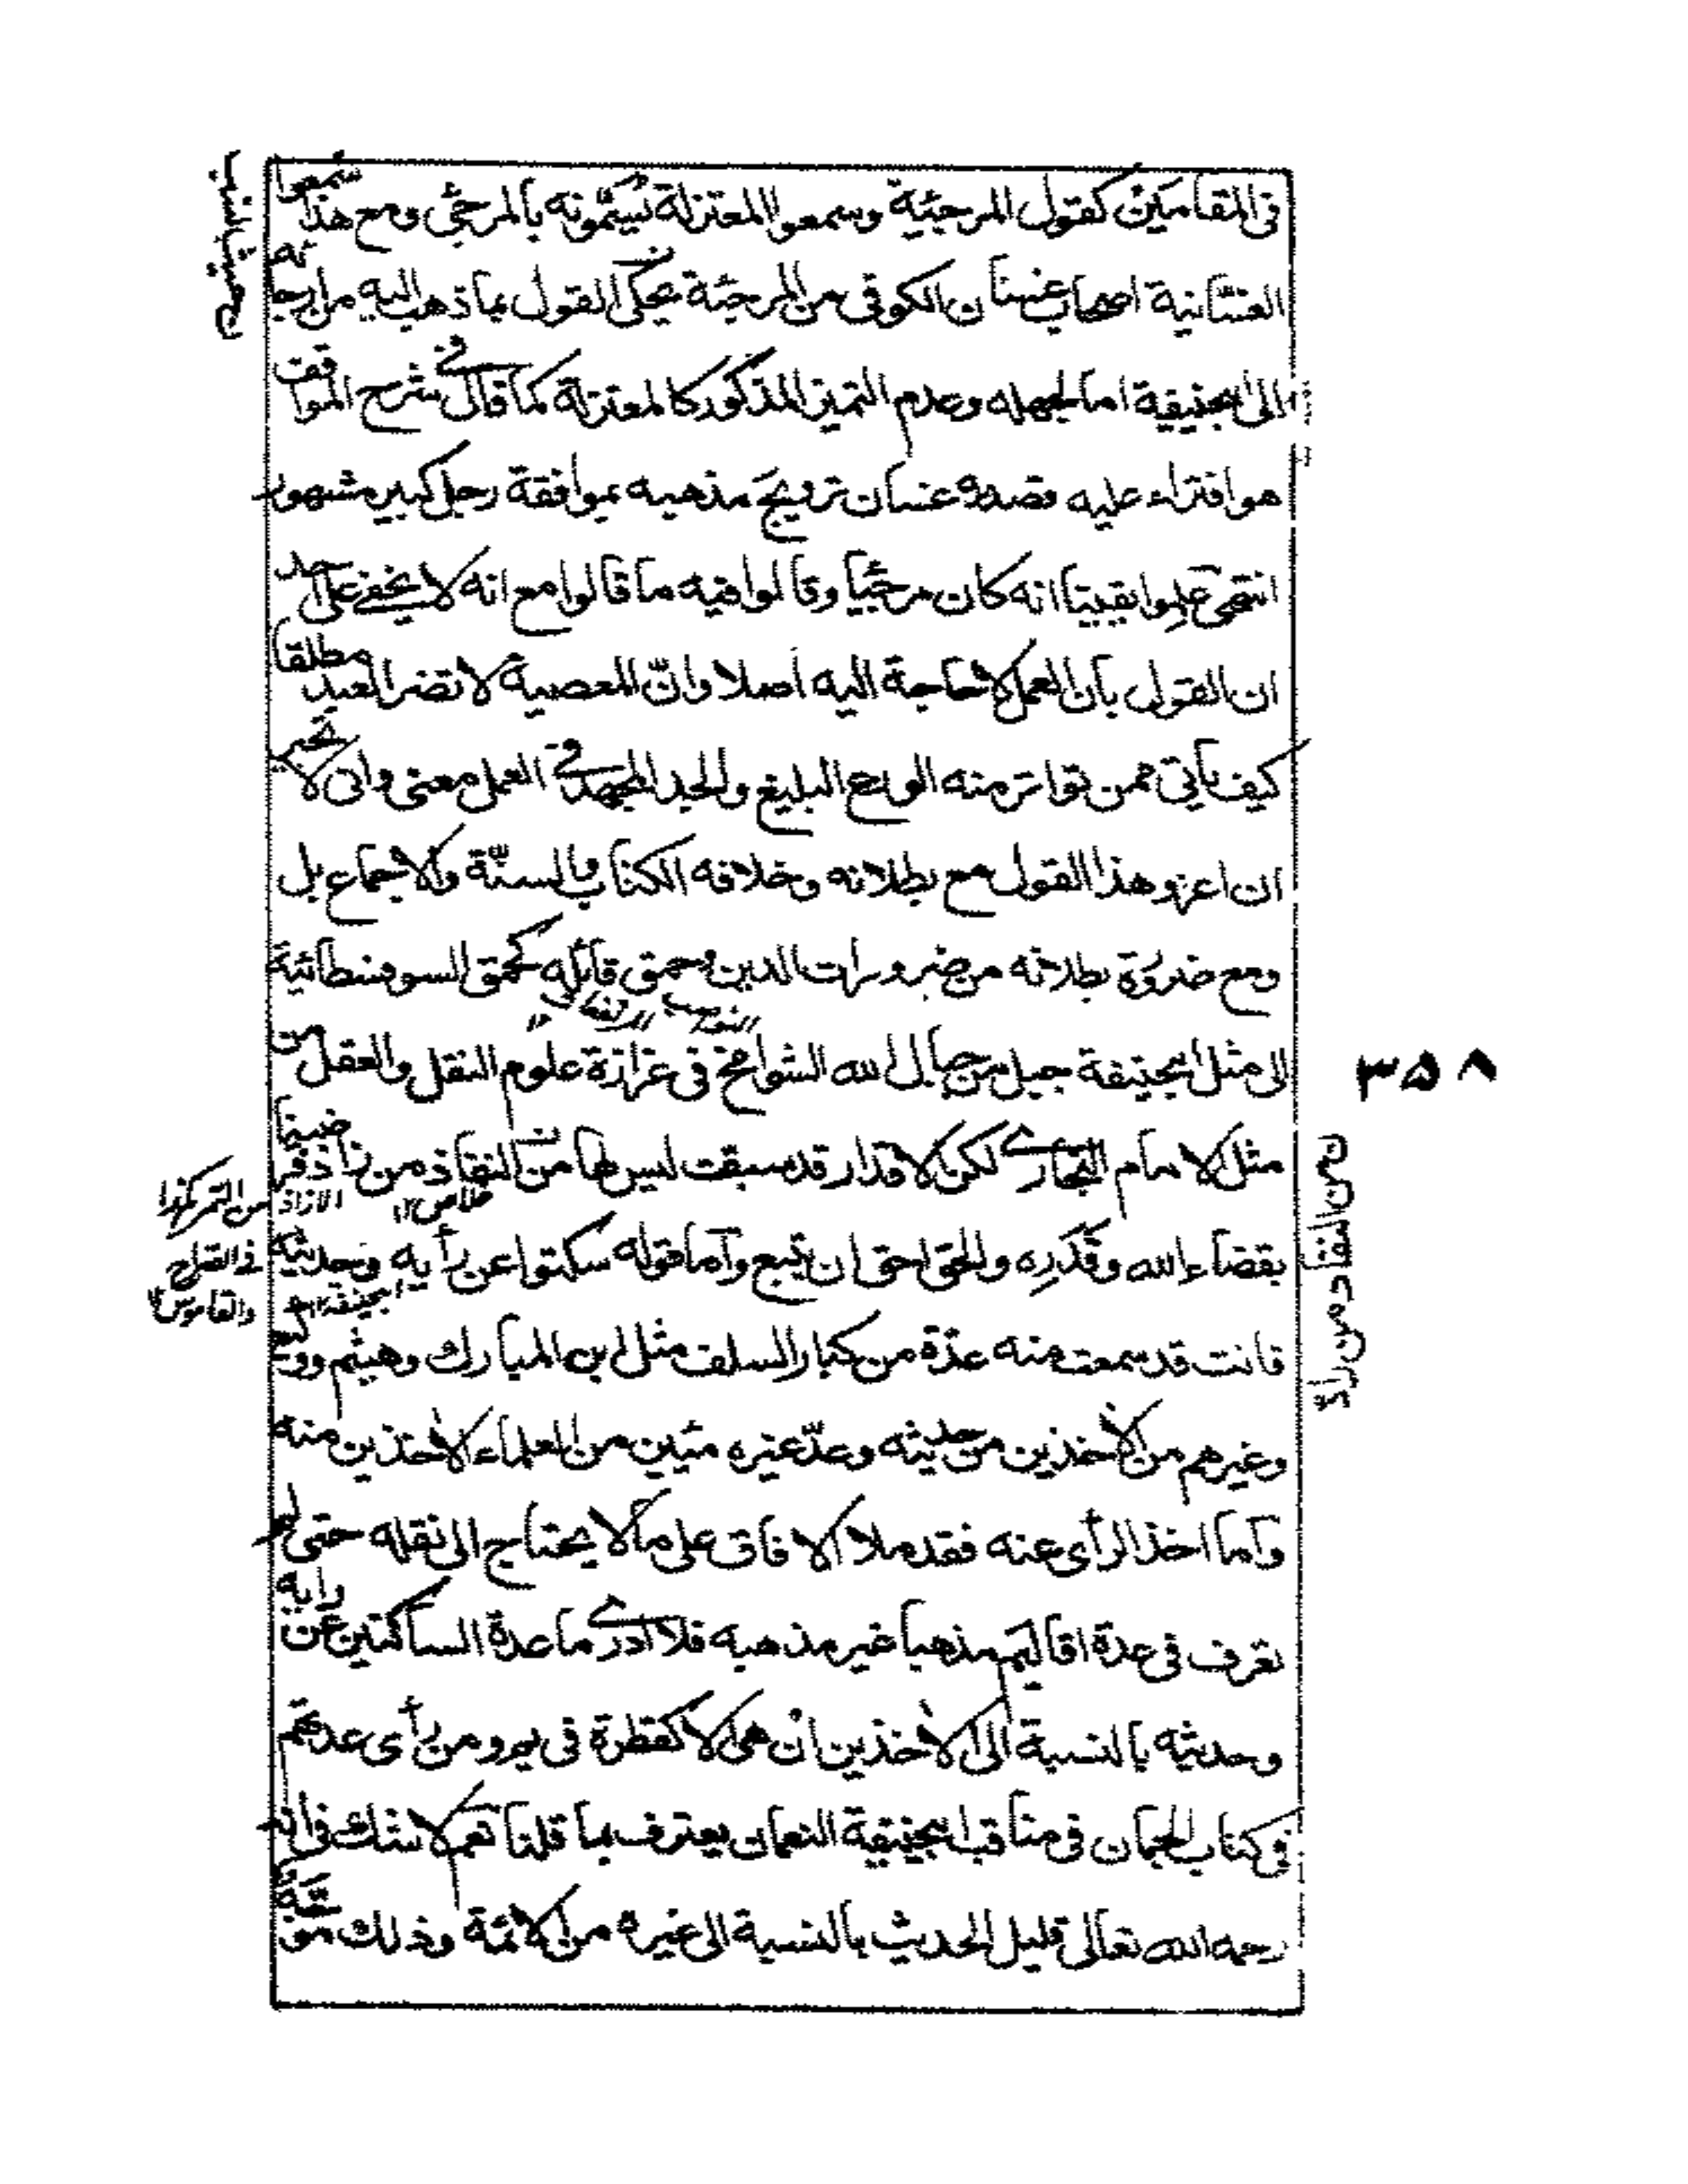 فى المقامين كقول المرجئية وسمعوا المعتزلة يسمّونه بالمرجئى ومع هذا سمعوا
الغسّانية اصحاب غسان الكوفى من المرجئة يحكى القول بما ذهب اليه من ارجائه
الى ابيحنيفة اما لجهله وعدم التميز المذكور كالمعتزلة كما قال فى شرح المواقف
هو افتراء عليه قصد به غسان ترويجَ مذهبه بموافقة رجل كبير مشهور
انتهى علِموا يقينا انه كان مرجئيا وقالوا فيه ما قالوا مع انه لا يخفى على احد
ان القول بان العمل لا حاجة اليه اصلا وانّ المعصية لا تضر العبد مطلقا
كيف يأتى ممن تواتر منه الورع البليغ والجد الجهيد فى العمل معنى وانى لا
ان اعزو هذا القول مع بطلانه وخلافه الكتاب والسنّة والاجماع بل
ومع ضرورة بطلانه من ضرورات الدين وحمق قائله كحمق السوفسطائية
الى مثل ابيحنيفة جبل من جبال الله الشوامخ فى غزازة علوم النقل والعقل من
مثل الامام البخارى لكن الاقدار قد سبقت ليس لها من النفاذ من زاذ فرضينا
بقضاء الله وقَدَرِه والحق احق ان يتبع وآما قوله سكتوا عن رأيه وحديثه
فانت قد سمعت منه عدّة من كبار السلف مثل ابن المبارك وهيثم ووكيع
وغيرهم من الاخذين من حديثه وعدّ غيره مئين من العلماء الاخذين منه
وآما اخذ الرأى عنه فقد ملا الافاق على ما لا يحتاج الى نقله حتى لم
تعرف فى عدة اقاليم مذهبا غير مذهبه فلا ادرى ما عدة الساكتين عن رايه
وحديثه بالنسبة الى الاخذين ان هى الا كقطرة فى يم ومن رأى عدتهم
فى كتاب الجمان فى مناقب ابيحنيفة النعمان يعترف بما قلنا نعم لا شك فى انه
رحمه الله تعالى قليل الحديث بالنسبة الى غيره من الائمة وذلك
٣٥٨
خلاص ١٢
الازاذ من التمر كهذا
فى الصراح
والقاموس ١٢
ابيحنيفة ١٢
من النفاد من زاد